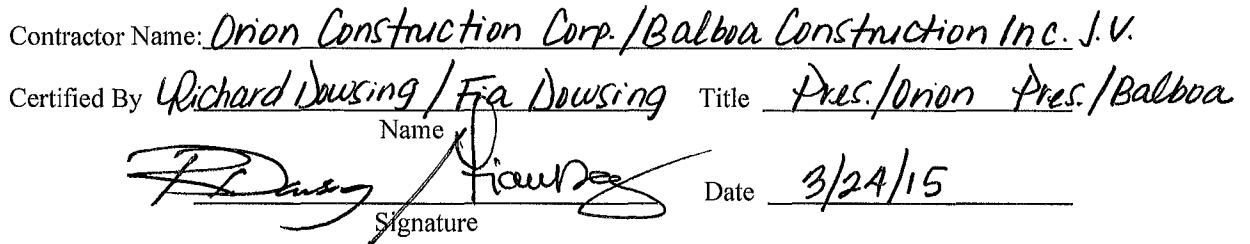 Contractor Name: Orion Construction Corp. / Balboa Construction Inc. J.V.
Certified By Richard Dowsing / Fia Dowsing Title Pres./Orion Pres./Balboa
Name
Date 3/24/15
Signature